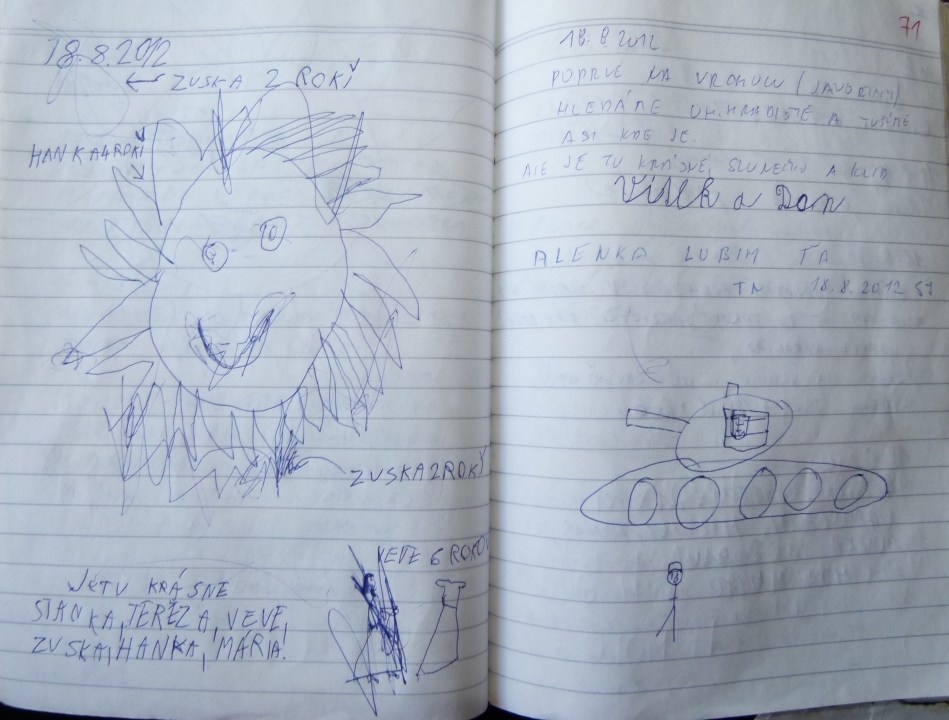 18.8.2012
ZUSKA 2 ROKY
HANKA 4 ROKI
ZUSKA 2 ROKY
VEVE 6 ROKOV
JETU KRÁSNE
STANKA, TEREZA, VEVE,
ZUSKA, HANKA, MÁRIA.
71
18.8.2012
POPRVÉ NA VRCHOLU (JAVORINY)
HLEDÁME UH. HRADIŠTĚ A TUŠÍME
ASI KDE JE.
ALE JE TU KRÁSNĚ, SLUNEČNO A KLID
a Dan
ALENKA LUBIM ŤA
TN 18.8.2012